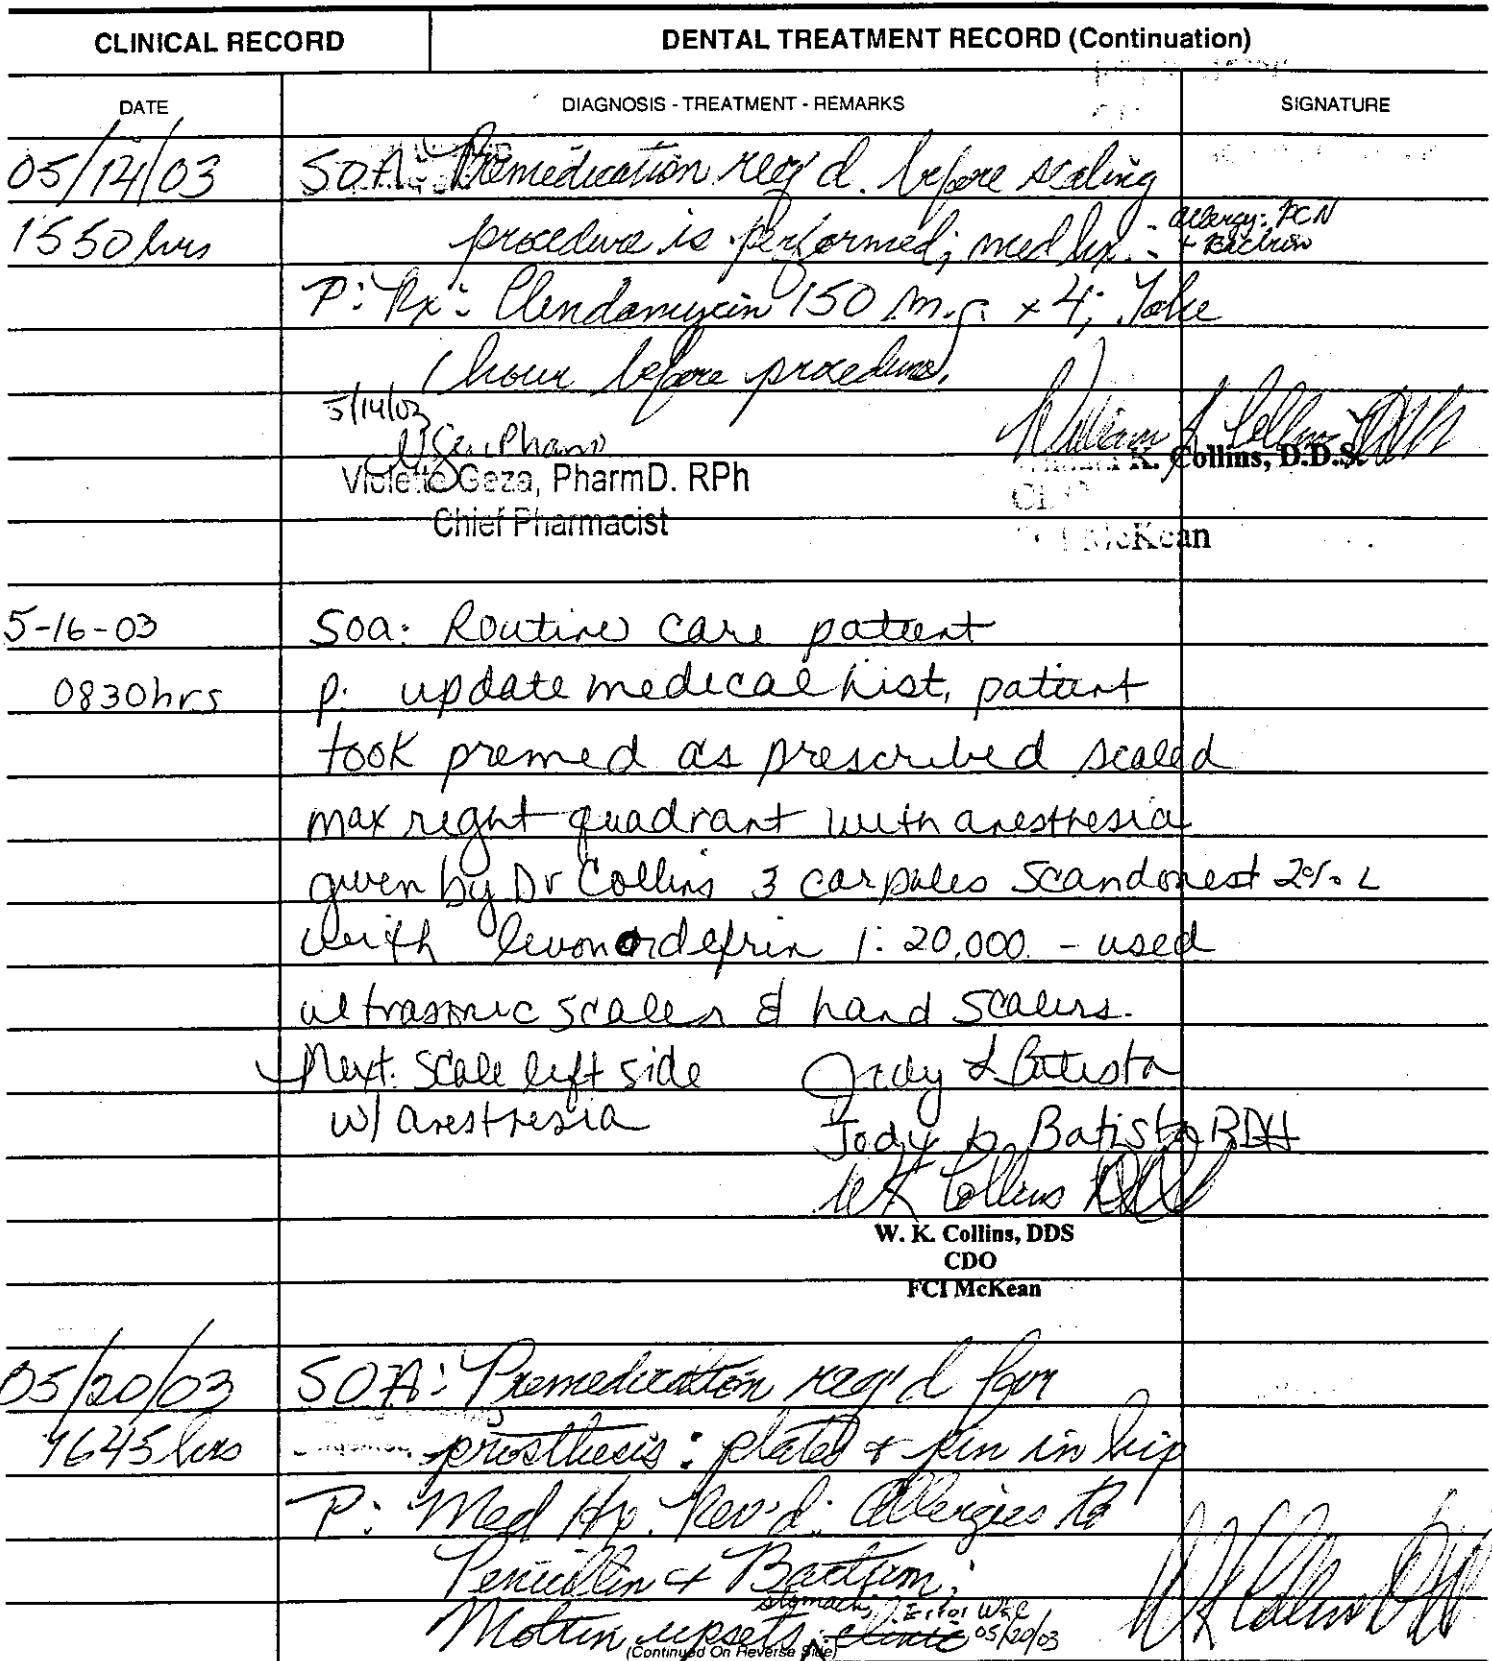 CLINICAL RECORD
DENTAL TREATMENT RECORD (Continuation)
DATE
DIAGNOSIS - TREATMENT - REMARKS
SIGNATURE
05/14/03 SOA: Premedication req'd. before scaling
1550 hrs procedure is performed; med hx. - allergy: PCN
+ Bactrim
P: Rx: Clendamycin 150 m.g. x 4; Take
1 hour before procedure.
5/14/03
William K Collins DDS
Violette Geza, PharmD. RPh
K. Collins, D.D.S.
Chief Pharmacist
McKean
5-16-03 SOA: Routine care patient
0830hrs P: update medical hist, patient
took premed as prescribed scaled
max right quadrant with anesthesia
given by Dr Collins 3 carpules Scandonest 2% L
with levonordefrin 1:20,000 - used
ultrasonic scaler & hand scalers.
Next: Scale left side
w/ anesthesia
Jody L Batista
Jody L. Batista RDH
WK Collins DDS
W. K. Collins, DDS
CDO
FCI McKean
05/20/03 SOA: Premedication req'd for
1645 hrs prosthesis: plates + pin in hip
P: Med Hx. Rev'd: Allergies to
Penicillin + Bactrim;
Motrin upsets stomach; clinic Error WKC 05/20/03
WK Collins DDS
(Continued On Reverse Side)